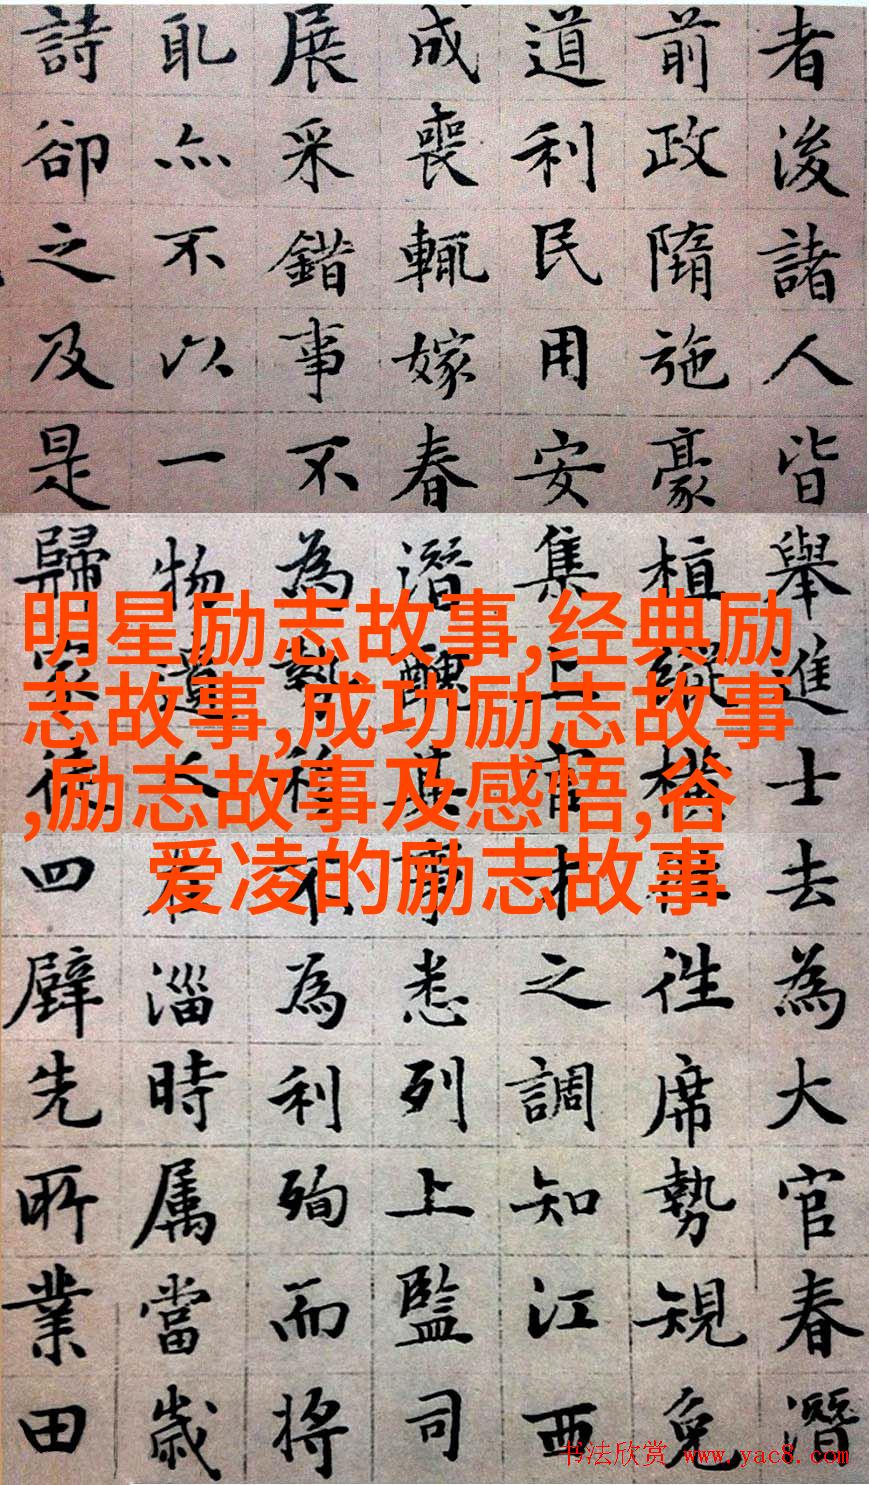 者後諸人皆舉進士去為大官春潛
前政隋施豪植縱橫往席勢規免
道利民用安集上官才之調知江西
成喪輒嫁春潛醜其事悉列上監司
展采錯事不為勢移不為利殉而將
恥亦不以一物遺人君淄時属當歲
詩卻之及是歸家徒四壁先所業田
明星励志故事,经典励
志故事,成功励志故事
,励志故事及感悟,谷
爱凌的励志故事
书法欣赏 www.yac8.com